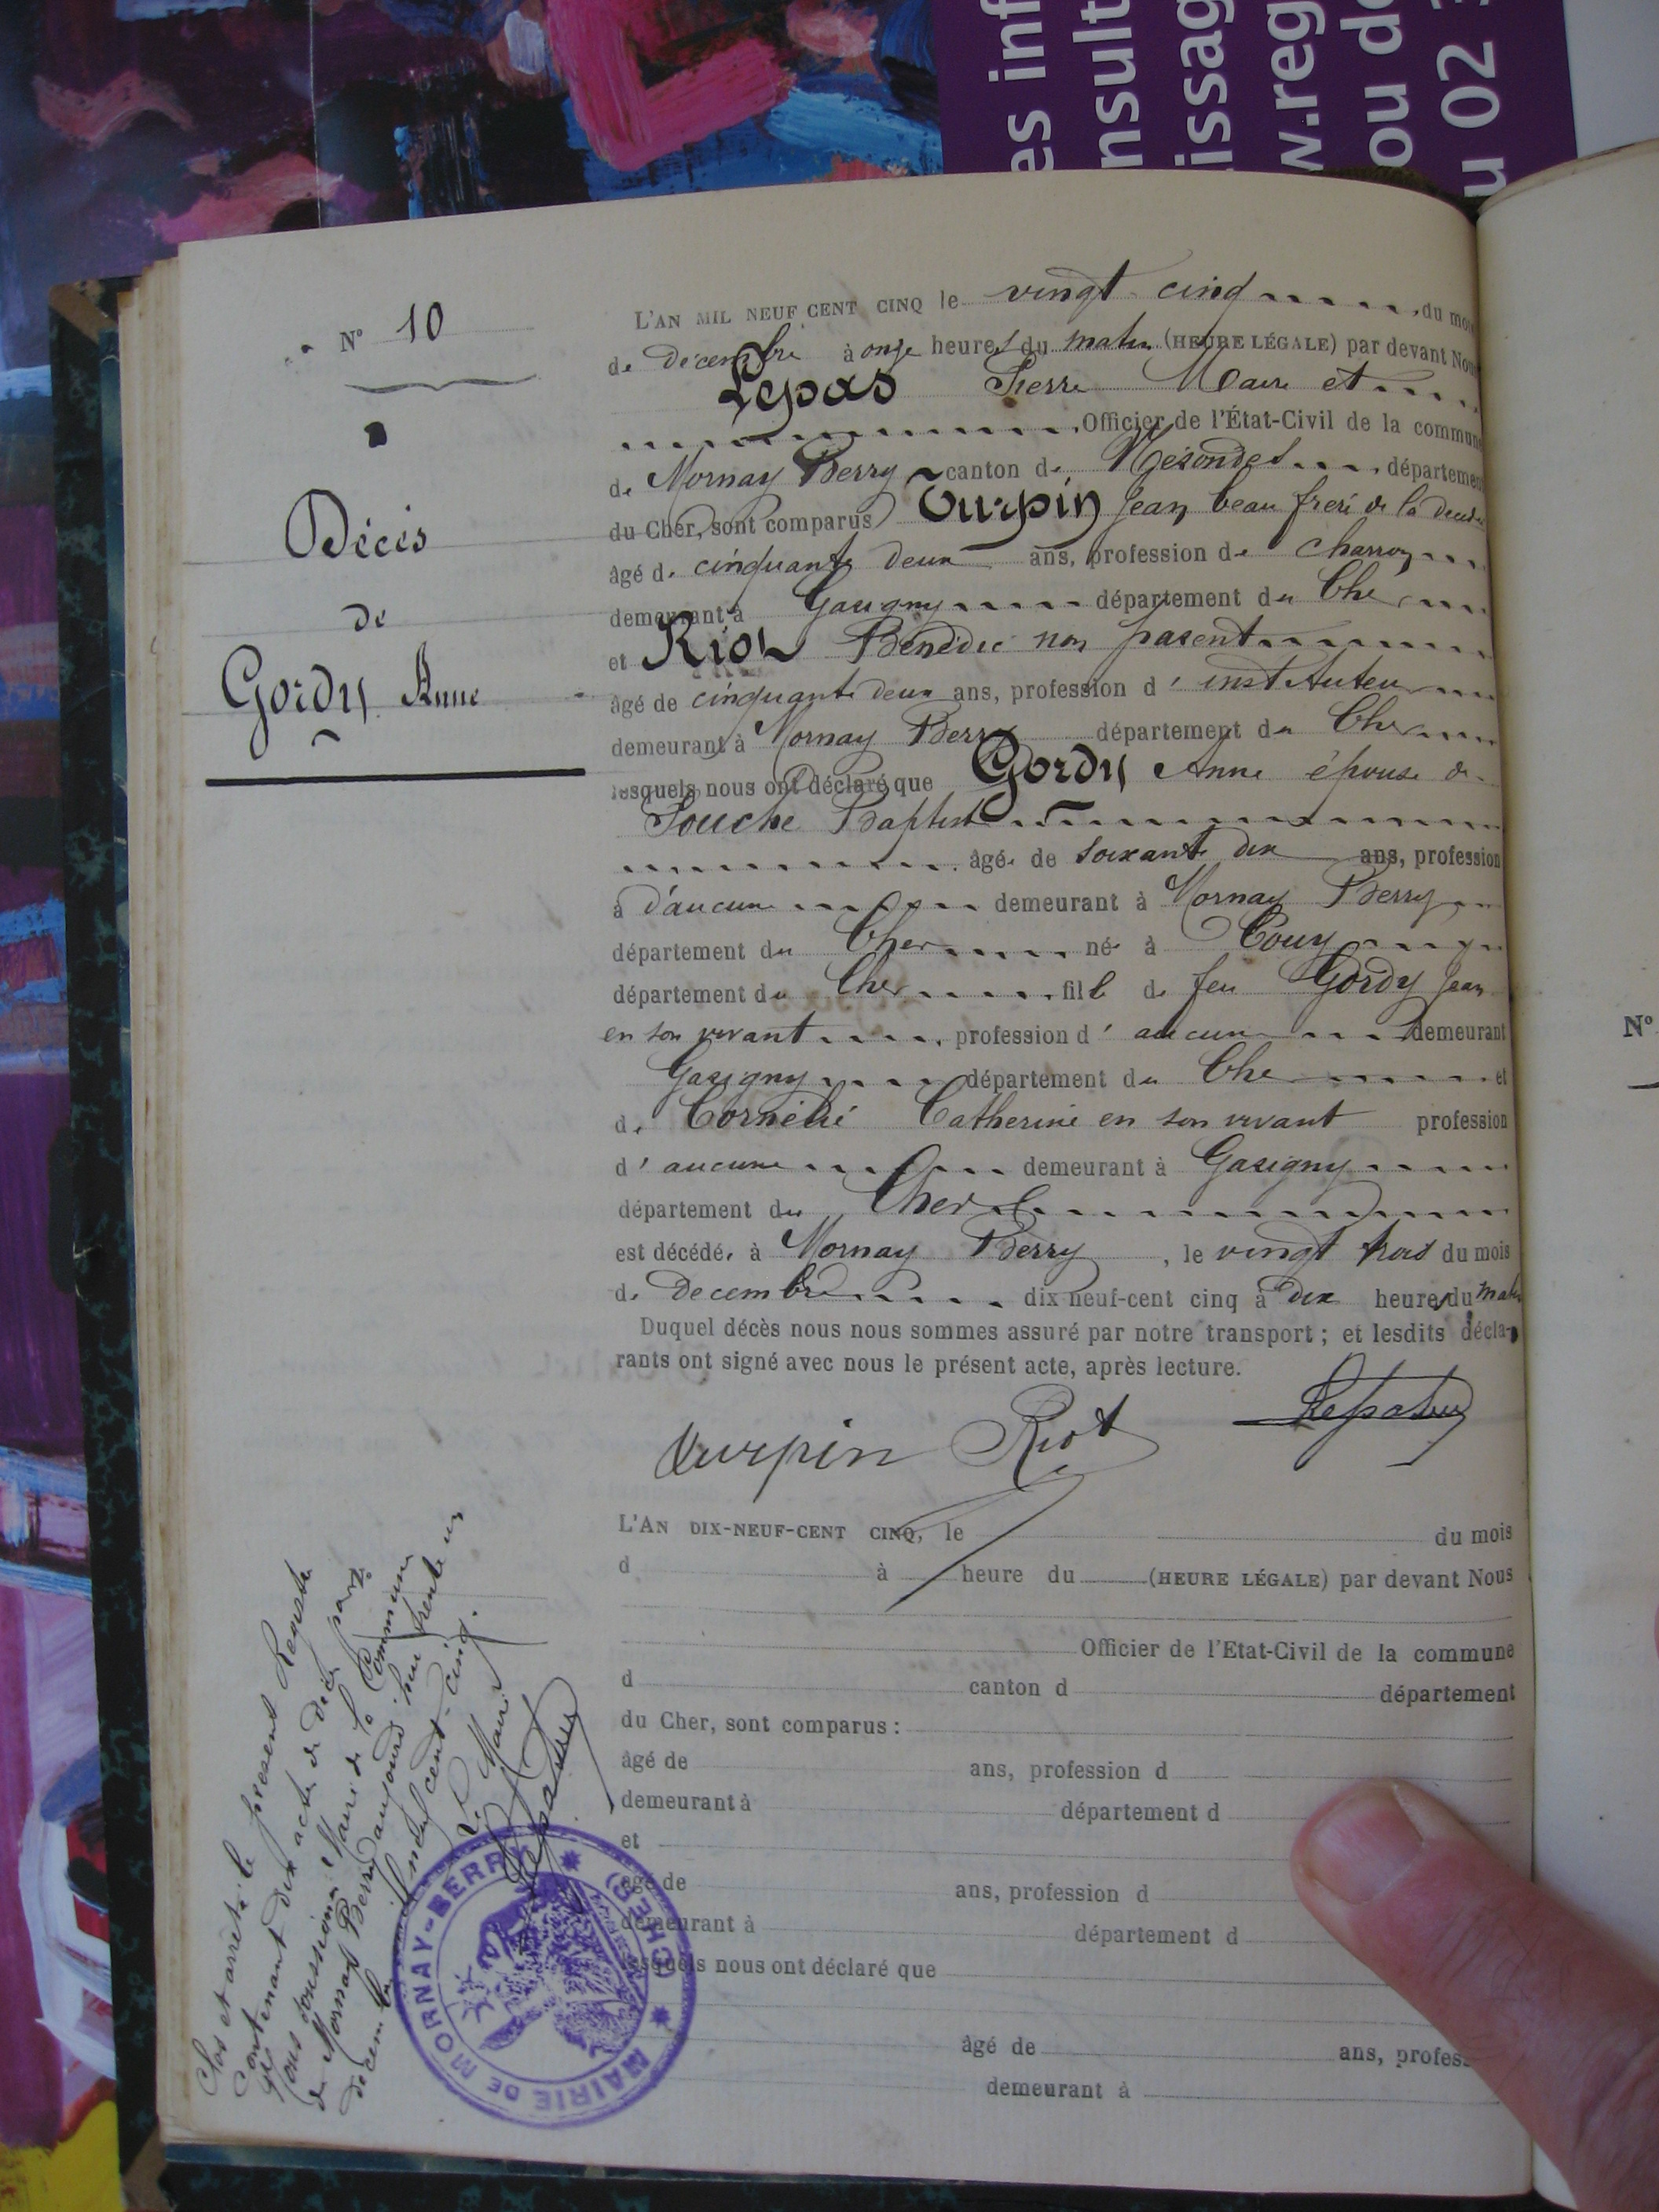 es inf
nsult
issag
w.reg
ou de
u 02 3
N° 10
Décès
de
Gordy Anne
L'AN MIL NEUF CENT CINQ le vingt cinq du mois
de décembre à onze heures du matin (HEURE LÉGALE) par devant Nous
Lepas Pierre Maire et
Officier de l'État-Civil de la commune
de Mornay Berry canton de Nérondes département
du Cher, sont comparus Turpin Jean beau frère de la
âgé de cinquante deux ans, profession de charron
demeurant à Garigny département du Cher
et Riot Bénédic non parent
âgé de cinquante deux ans, profession d'instituteur
demeurant à Mornay Berry département du Cher
lesquels nous ont déclaré que Gordy Anne épouse de
Souche Baptiste
âgée de soixante dix ans, profession
à d'aucune demeurant à Mornay Berry
département du Cher née à Couy
département du Cher fille de feu Gordy Jean
en son vivant profession d'aucune demeurant
Garigny département du Cher et
de Cornélié Catherine en son vivant profession
d'aucune demeurant à Garigny
département du Cher
est décédée à Mornay Berry, le vingt trois du mois
de decembre dix neuf-cent cinq à dix heures du matin
Duquel décès nous nous sommes assuré par notre transport ; et lesdits décla-
rants ont signé avec nous le présent acte, après lecture.
Turpin Riot
L'AN DIX-NEUF-CENT CINQ, le du mois
d à heure du (HEURE LÉGALE) par devant Nous
Officier de l'Etat-Civil de la commune
d canton d département
du Cher, sont comparus :
âgé de ans, profession d
demeurant à département d
et
âgé de ans, profession d
demeurant à département d
lesquels nous ont déclaré que
âgé de ans, profess
demeurant à
Clos et arrêté le présent Registre
contenant dix acte de décès par
nous soussigné Maire de la Commune
de Mornay Berry aujourd'hui trente un
décembre mil neuf cent cinq.
Le Maire
MAIRIE DE MORNAY-BERRY * (CHER) *
N°